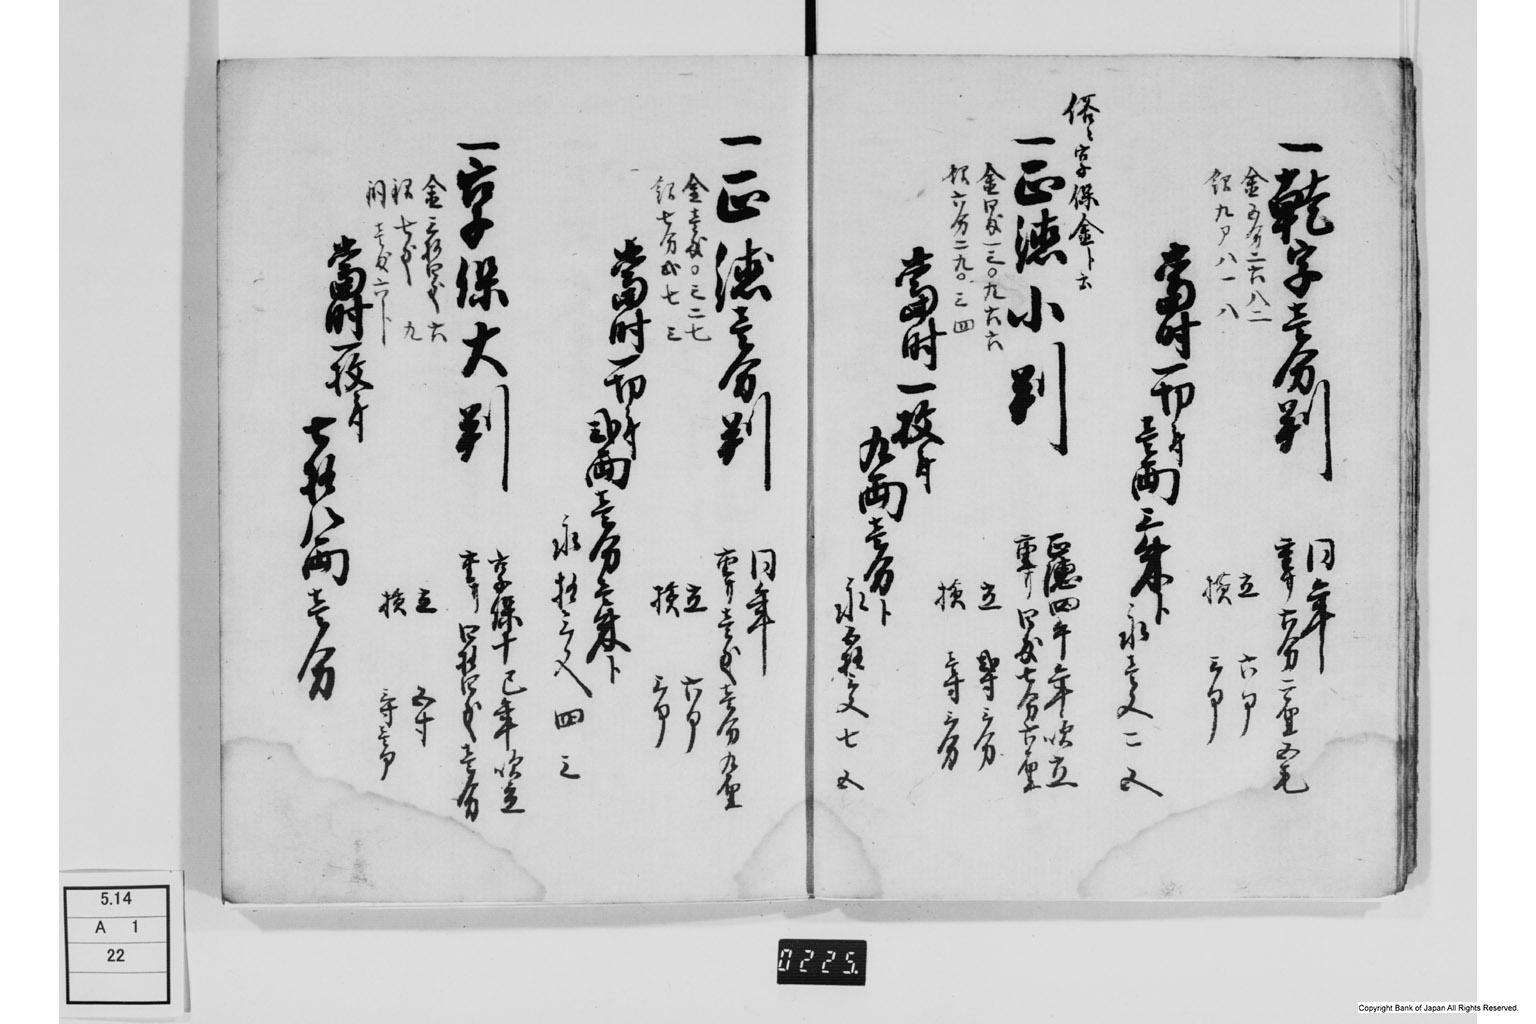 一乾字壱分判
同年
重サ六分二厘五毛
金五分二六八二
銀九リ八一八
立 六分
横 三分
當時一切ニ付
壱両三朱ト
永壱文二五
俗ニ享保金ト云
一正徳小判
正徳四午年吹立
重サ四匁七分六厘
金四匁一三〇九六六
銀六分二九〇三四
立 弐寸三分
横 壱寸三分
當時一枚ニ付
九両壱分ト
永五拾文七五
一正徳壱分判
同年
重サ壱匁壱分九厘
金壱匁〇三二七
銀七分弐七三
立 六分
横 三分
當時一切ニ付
弐両壱分壱朱ト
永拾三文四三
一享保大判
享保十巳年吹立
重サ四拾四匁壱分
金三拾四匁六
銀七匁九
銅壱匁六ト
立 五寸
横 三寸壱分
當時一枚ニ付
七拾八両壱分
5.14
A 1
22
0225.
Copyright Bank of Japan All Rights Reserved.